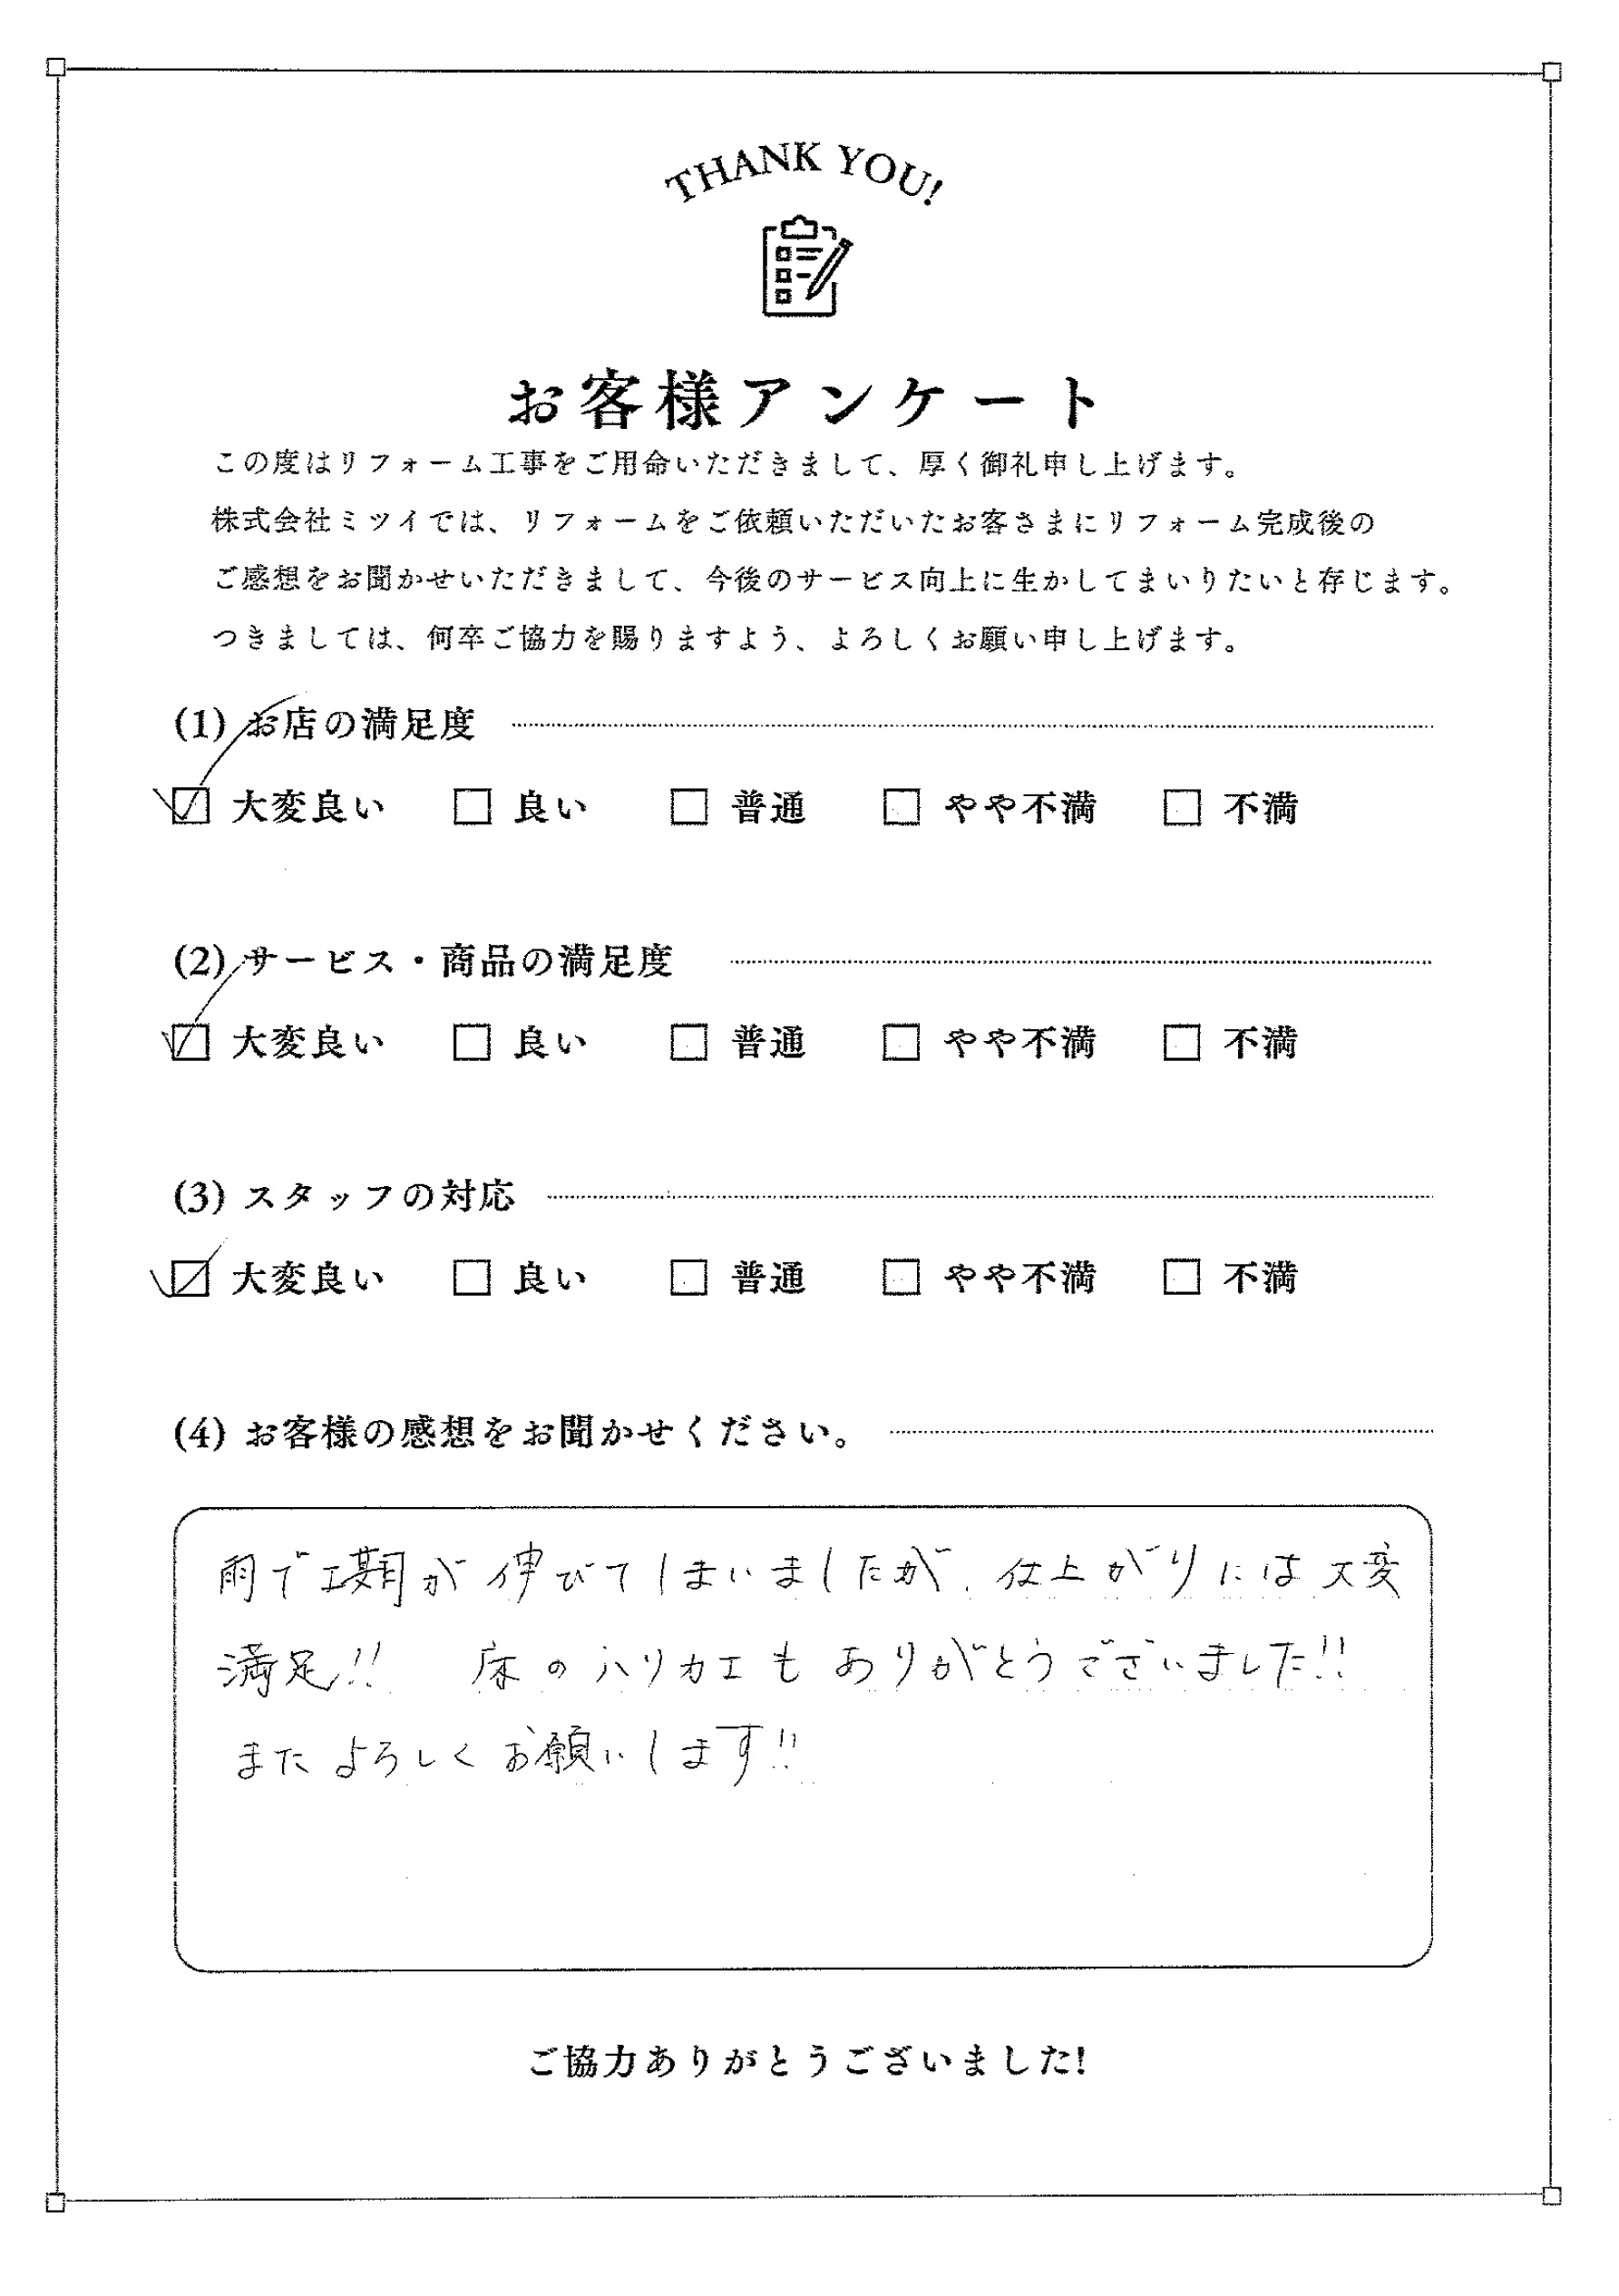 THANK YOU!
お客様アンケート
この度はリフォーム工事をご用命いただきまして、厚く御礼申し上げます。
株式会社ミツイでは、リフォームをご依頼いただいたお客さまにリフォーム完成後の
ご感想をお聞かせいただきまして、今後のサービス向上に生かしてまいりたいと存じます。
つきましては、何卒ご協力を賜りますよう、よろしくお願い申し上げます。
(1) お店の満足度
☑ 大変良い □ 良い □ 普通 □ やや不満 □ 不満
(2) サービス・商品の満足度
☑ 大変良い □ 良い □ 普通 □ やや不満 □ 不満
(3) スタッフの対応
☑ 大変良い □ 良い □ 普通 □ やや不満 □ 不満
(4) お客様の感想をお聞かせください。
雨で工期が伸びてしまいましたが、仕上がりには大変
満足!! 床のハリカエもありがとうございました!!
またよろしくお願いします!!
ご協力ありがとうございました!